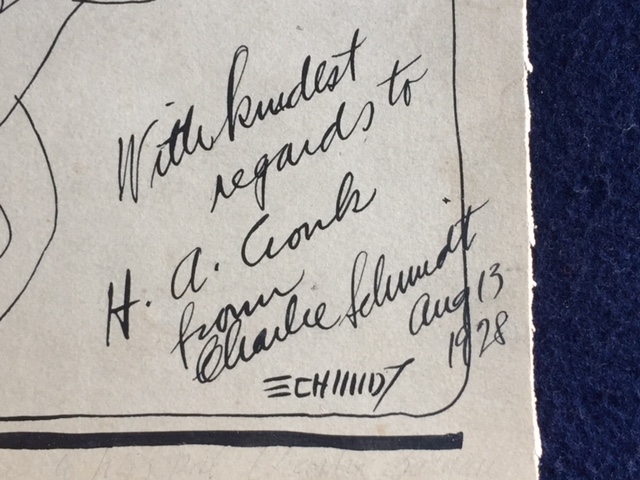 With kindest
regards to
H. A. Cronk
from
Charlie Schmidt
Aug 13
1928
SCHMIDT